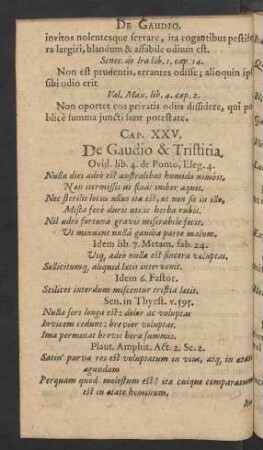 DE GAUDIO.
invitos nolentesque servare, ita rogantibus pestife
ra largiri, blandum & affabile odium est.
Senec. de Ira lib. 1. cap. 14.
Non est prudentis, errantes odisse; alioquin ipse
sibi odio erit.
Val. Max. lib. 4. cap. 2.
Non oportet eos privatis odiis dissidere, qui pu
blicè summa juncti sunt potestate.
CAP. XXV.
De Gaudio & Tristitia.
Ovid. lib. 4. de Ponto, Eleg. 4.
Nulla dies adeò est australibus humida nimbis,
Non itermissis ut fluat imber aquis.
Nec sterilis locus ullus ita est, ut non sit in illo,
Mista ferè duris utilis herba rubis.
Nil adeò fortuna gravis miserabile fecit,
Ut minuant nullâ gaudia parte malum.
Idem lib. 7. Metam. fab. 24.
Usq, adeò nulla est sincera voluptas,
Sollicitumq, aliquid lætis intervenit.
Idem 6. Fastor.
Scilicet interdum miscentur tristia lætis.
Sen. in Thyest. v. 595.
Nulla sors longa est: dolor ac voluptas
Invicem cedunt: brevior voluptas.
Ima permutat brevis hora summis.
Plaut. Amphit. Act. 2. Sc. 2.
Satin' parva res est voluptatum in vita, atq, in ætate
agundam
Perquam quod molestum est! ita cuique comparatum
est in ætate hominum,